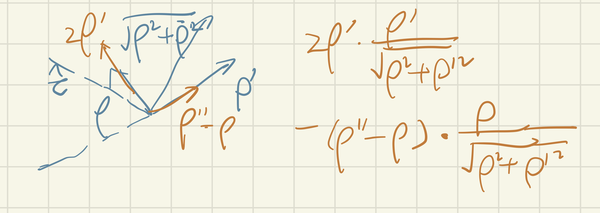 2ρ'
√ρ²+ρ'²
ρ
ρ'
ρ''-ρ
2ρ' · ρ'/√ρ²+ρ'²
-(ρ''-ρ) · ρ/√ρ²+ρ'²